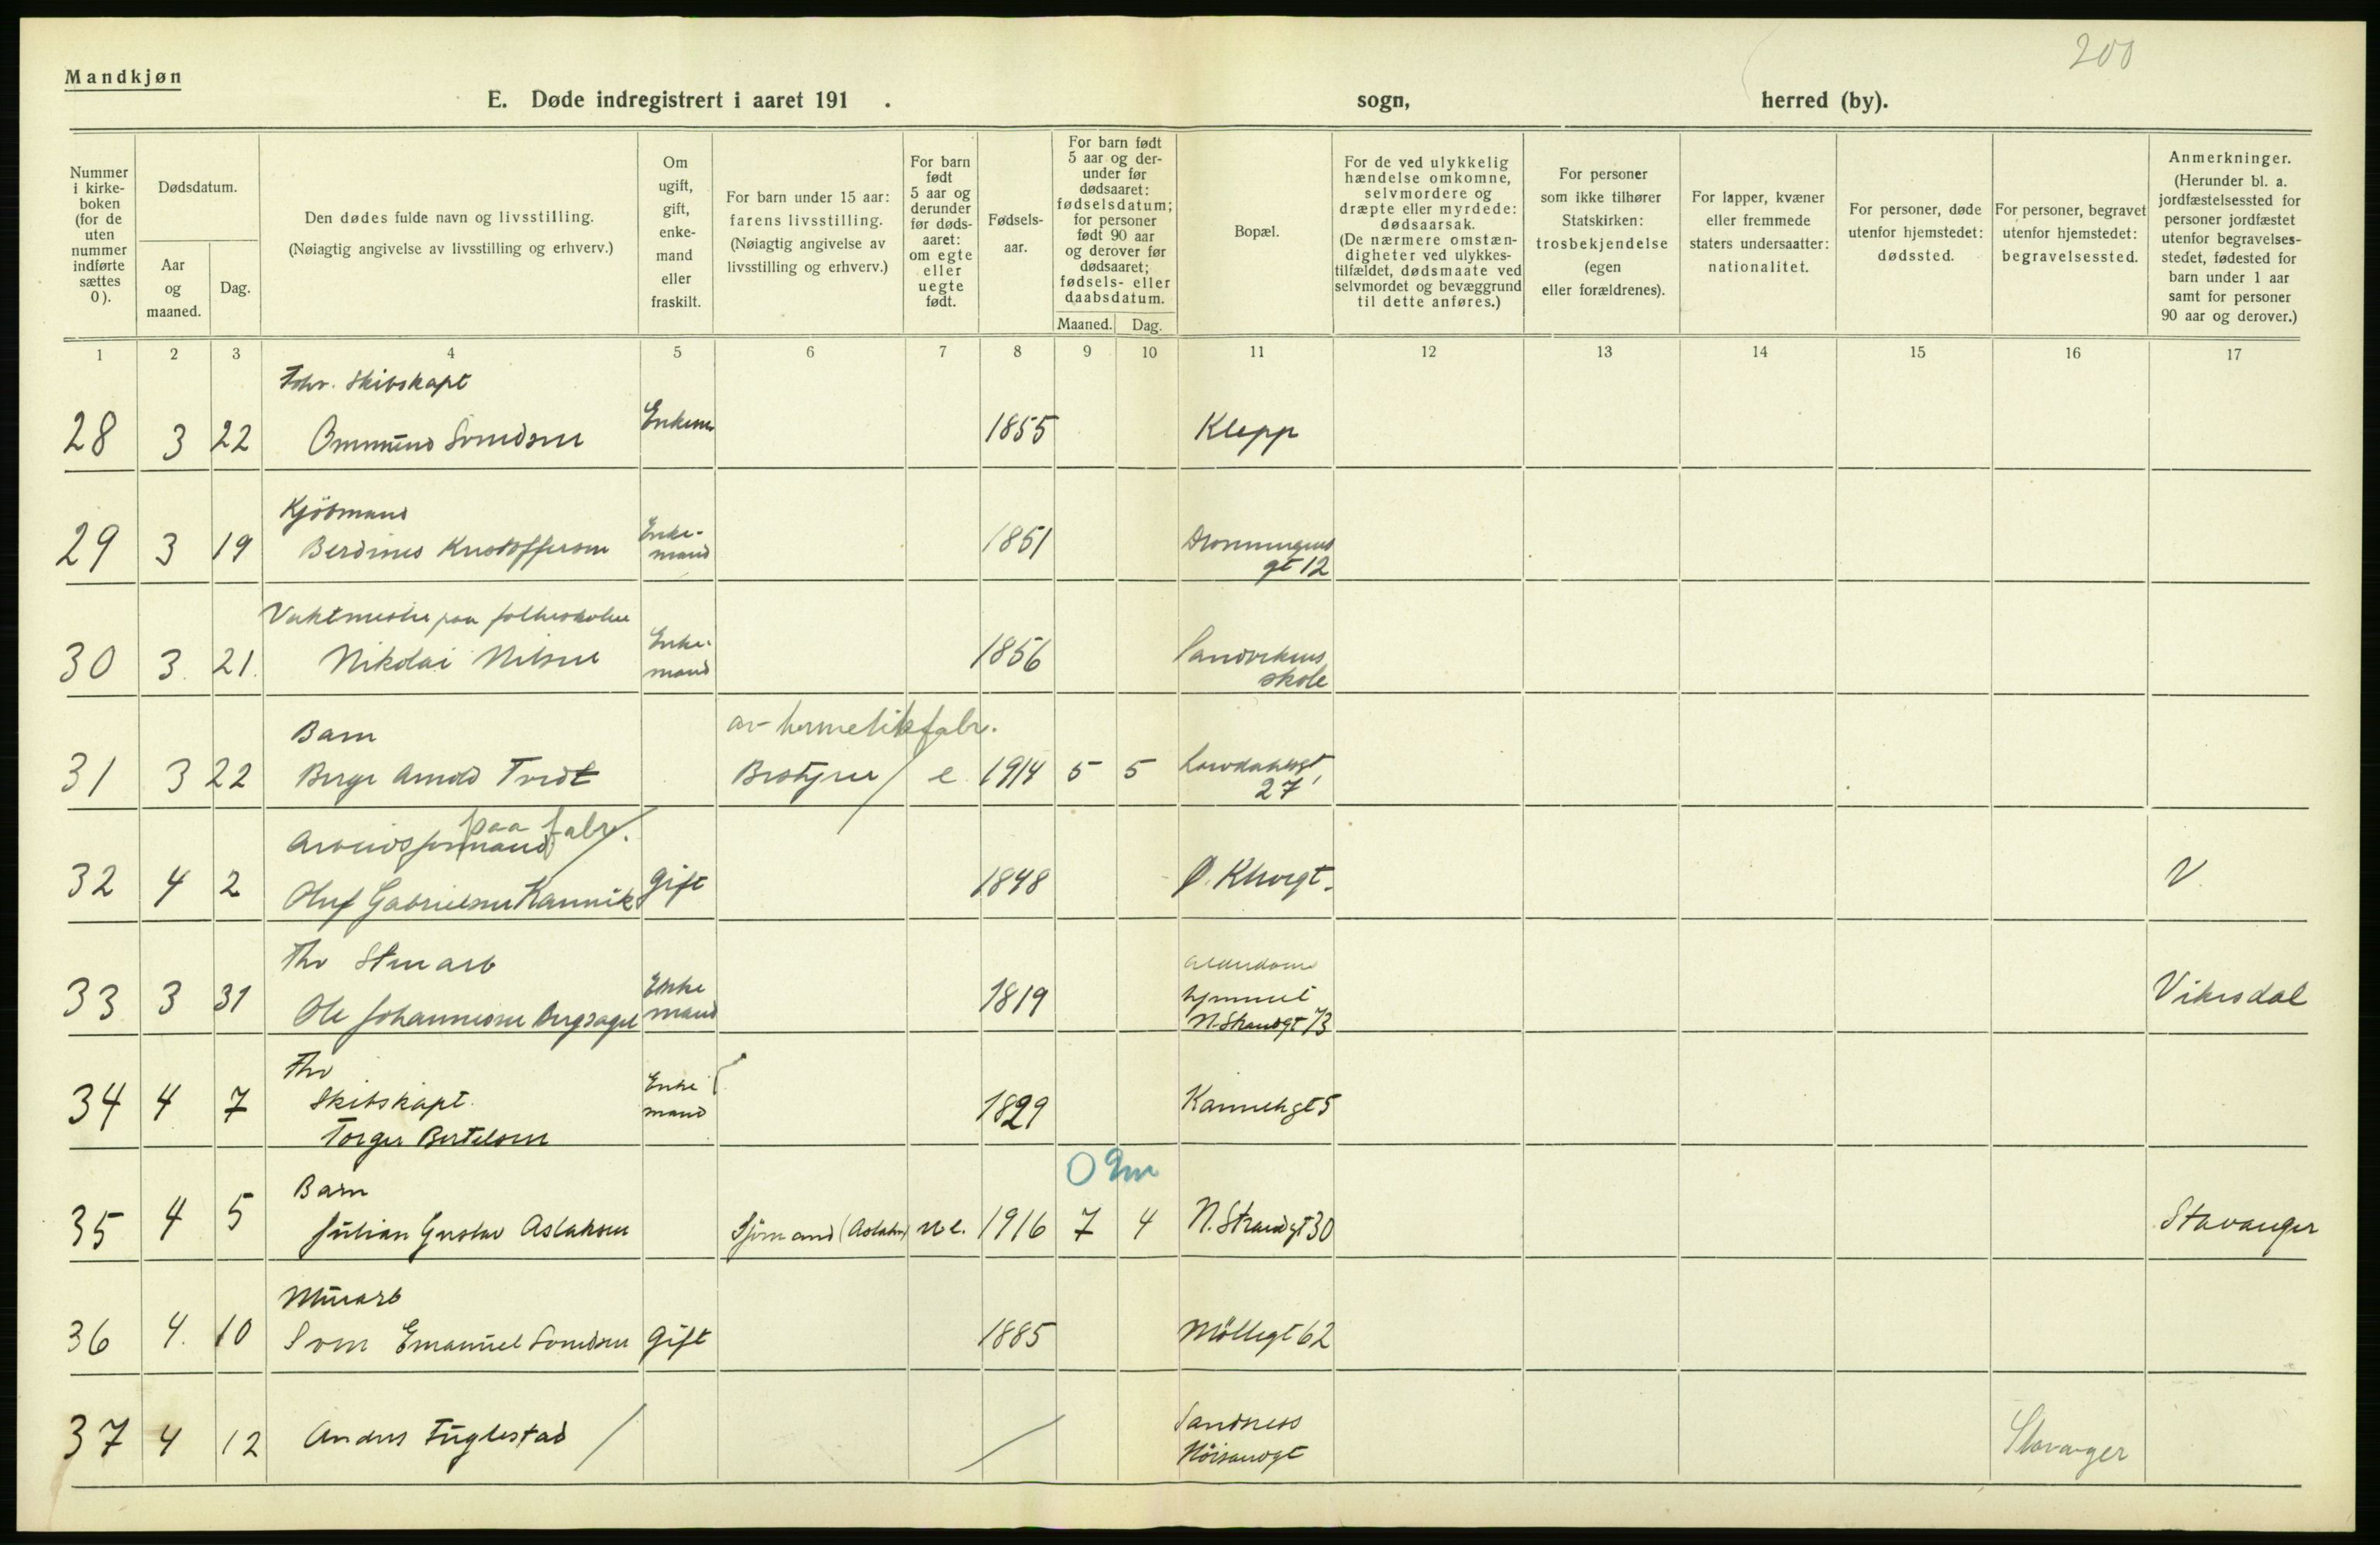 200
Mandkjøn
E. Døde indregistrert i aaret 191 . sogn, herred (by).
Nummer i kirke-boken (for de uten nummer indførte sættes 0).
Dødsdatum.
Aar og maaned.
Dag.
Den dødes fulde navn og livsstilling.
(Nøiagtig angivelse av livsstilling og erhverv.)
Om ugift, gift, enke-mand eller fraskilt.
For barn under 15 aar: farens livsstilling. (Nøiagtig angivelse av livsstilling og erhverv.)
For barn født 5 aar og derunder før døds-aaret: om egte eller uegte født.
Fødsels-aar.
For barn født 5 aar og der-under før dødsaaret: fødselsdatum; for personer født 90 aar og derover før dødsaaret; fødsels- eller daabsdatum.
Maaned. Dag.
Bopæl.
For de ved ulykkelig hændelse omkomne, selvmordere og dræpte eller myrdede: dødsaarsak. (De nærmere omstæn-digheter ved ulykkes-tilfældet, dødsmaate ved selvmordet og bevæggrund til dette anføres.)
For personer som ikke tilhører Statskirken: trosbekjendelse (egen eller forældrenes).
For lapper, kvæner eller fremmede staters undersaatter: nationalitet.
For personer, døde utenfor hjemstedet: dødssted.
For personer, begravet utenfor hjemstedet: begravelsessted.
Anmerkninger. (Herunder bl. a. jordfæstelsessted for personer jordfæstet utenfor begravelses-stedet, fødested for barn under 1 aar samt for personer 90 aar og derover.)
1 2 3 4 5 6 7 8 9 10 11 12 13 14 15 16 17
Skibskapt
28 3 22 Ommund Enkem 1855 Klepp
Kjöbmand
29 3 19 Enke-mand 1851 Dronningens gt 12
Vaktmester paa folkeskolen
30 3. 21. Nikolai Nilsen Enke-mand 1856 Sandvikens skole
Barn av hermetikfabr.
31 3 22 Arnold Tvedt Bestyrer e. 1914 5 5 27
Arbeidsformand paa fabr.
32 4 2 Oluf Gabrielsen Kannik gift 1848 V.
33 3 31 Ole Johannesen Enke mand 1819 N. Strandgt 73 Vikedal
Skibskapt.
34 4 7 Torger Bertelsen Enke mand 1829 Kannikgt 5
0 9m
Barn
35 4 5 Julian Gustav Aslaksen Sjömand (Aslaksen) u e. 1916 7 4 N. Strandgt 30 Stavanger
Murarb
36 4. 10 Sven Emanuel Svendsen gift 1885 Möllegt 62
37 4 12 Andres Fuglestad Sandness Stavanger